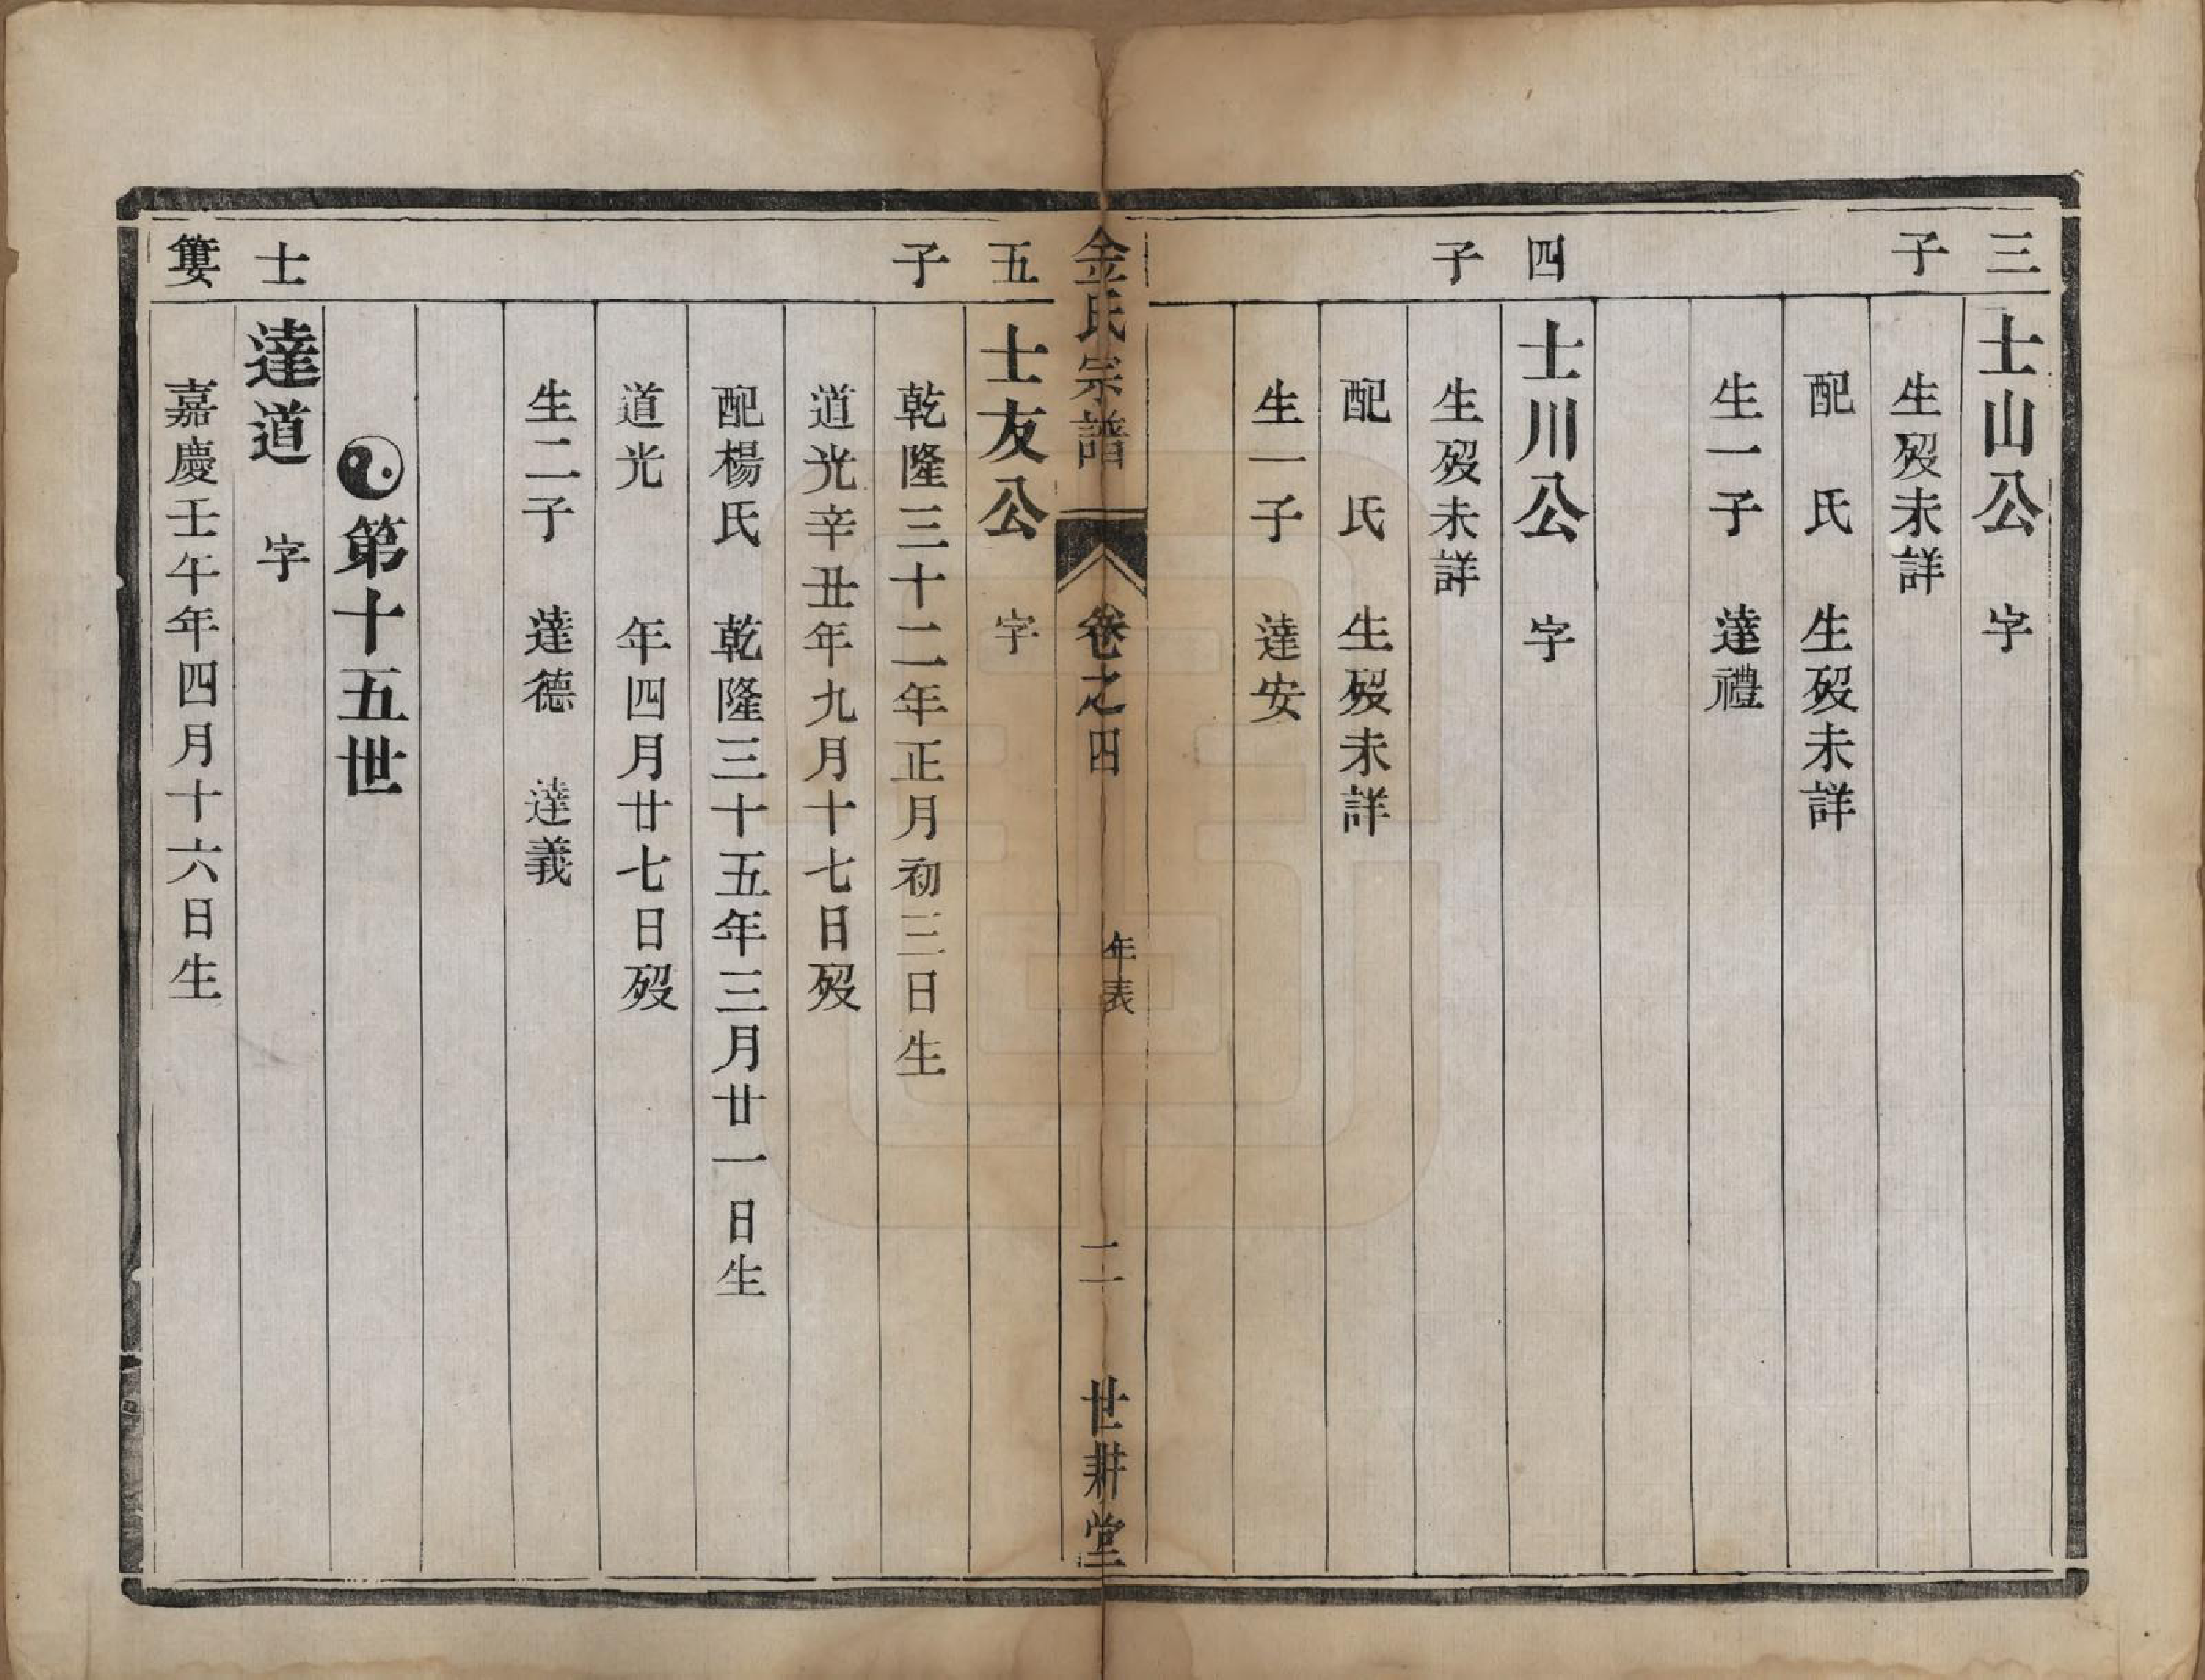 三
士山公　字
子
生歿未詳
配　氏　生歿未詳
生一子　達禮
四
士川公　字
子
生歿未詳
配　氏　生歿未詳
生一子　達安
金氏宗譜　卷之四　年表　二　世耕堂
五
士友公　字
子
乾隆三十二年正月初三日生
道光辛丑年九月十七日歿
配楊氏　乾隆三十五年三月廿一日生
道光　年四月廿七日歿
生二子　達德　達義
第十五世
士
達道　字
嘉慶壬午年四月十六日生